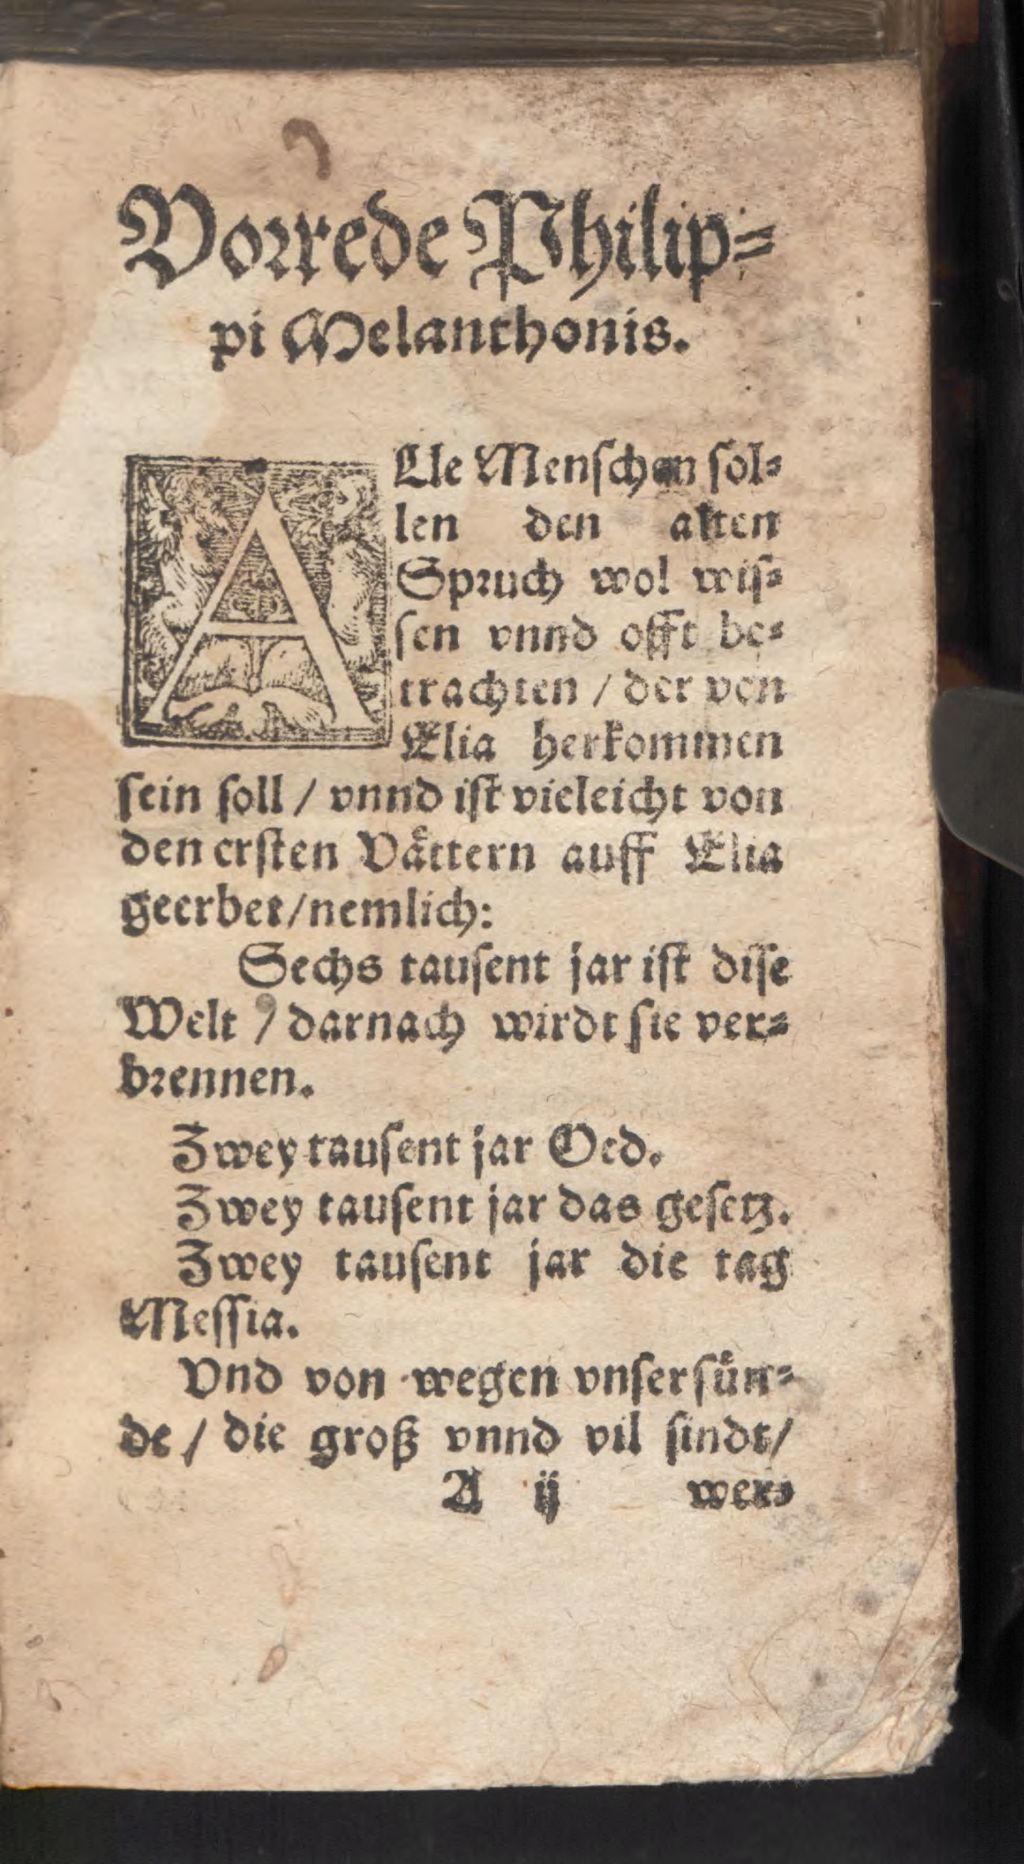 Vorrede Philip⸗
pi Melanthonis.
ALle Menschen sol⸗
len den alten
Spruch wol wis⸗
sen vnnd offt be⸗
trachten / der von
Elia herkommen
sein soll / vnnd ist vieleicht von
den ersten Vättern auff Elia
geerbet/nemlich:
Sechs tausent jar ist dise
Welt / darnach wirdt sie ver⸗
brennen.
Zwey tausent jar Oed.
Zwey tausent jar das gesetz.
Zwey tausent jar die tag
Messia.
Vnd von wegen vnser sün⸗
de / die groß vnnd vil sindt/
A ij wer⸗